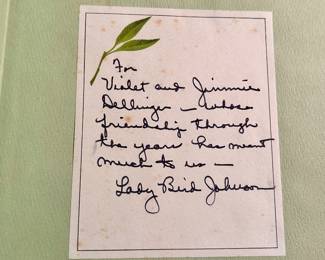 For
Violet and Jimmie
Dellinger — whose
friendship through
the years has meant
much to us —
Lady Bird Johnson